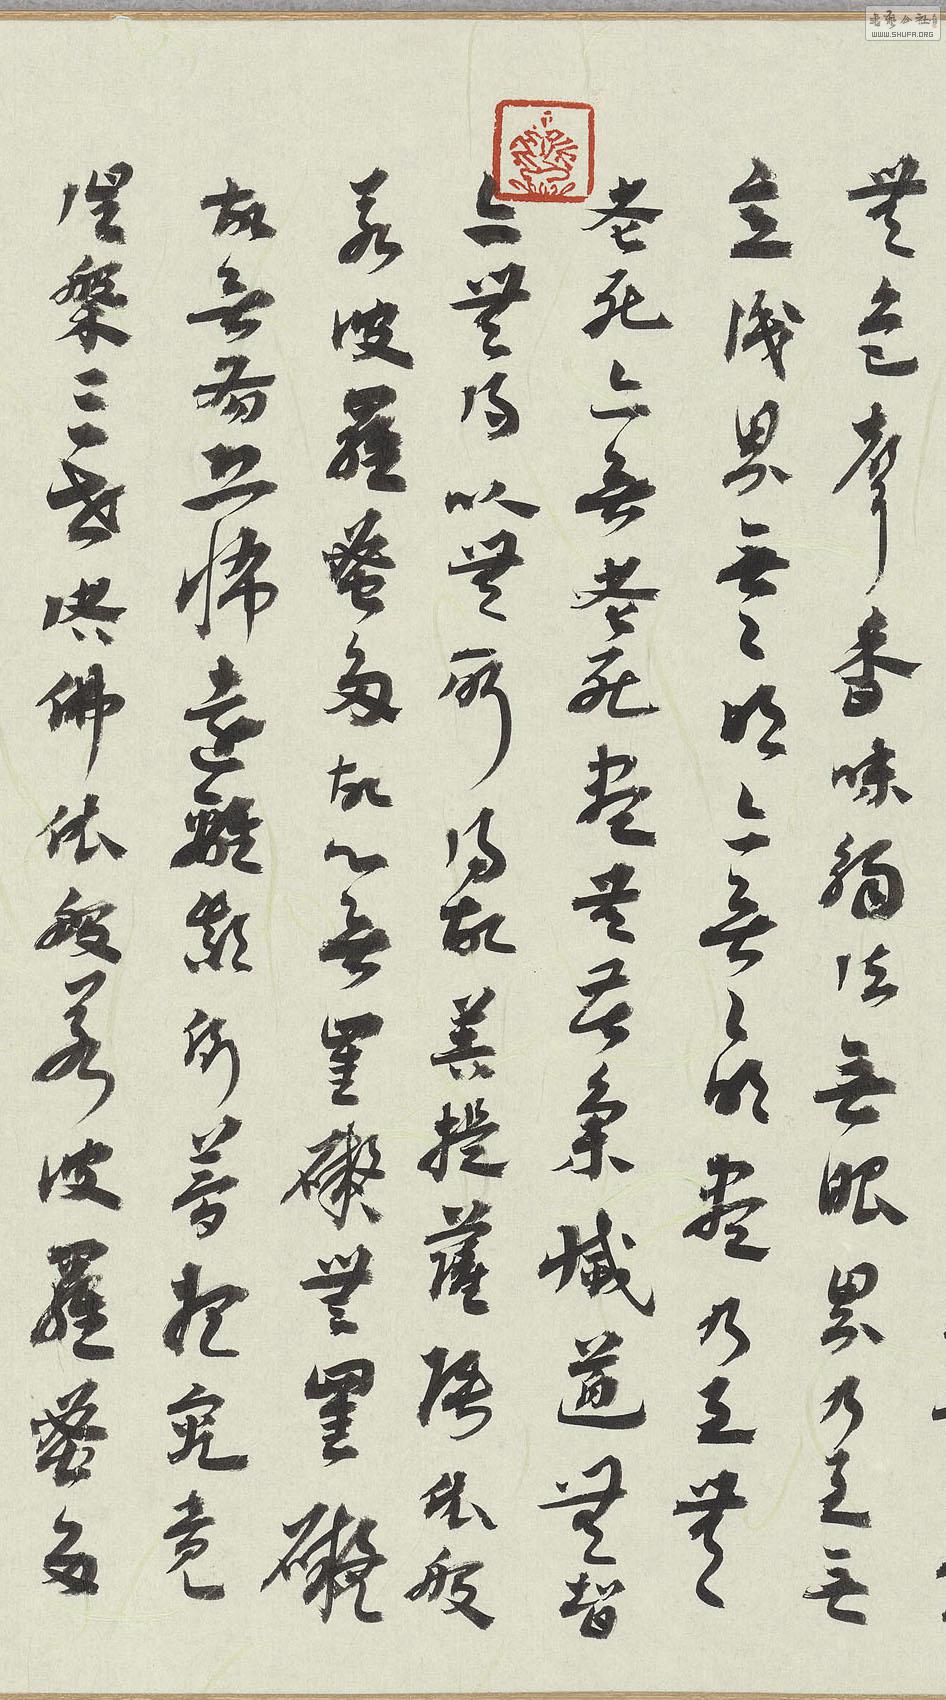 無色聲香味觸法無眼界乃至無
意識界無〻明亦無〻明盡乃至無〻
老死亦無老死盡無苦集滅道無智
亦無得以無所得故菩提薩埵依般
若波羅蜜多故心無罣礙無罣礙
故無有恐怖遠離顛倒夢想究竟
涅槃三世諸佛依般若波羅蜜多
WWW.SHUFA.ORG